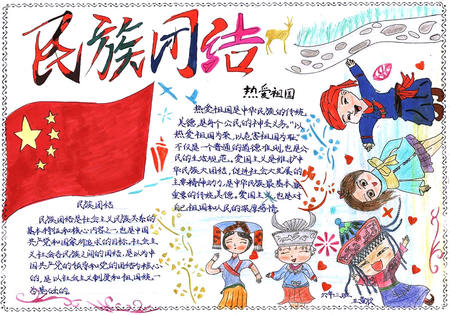 民族团结
热爱祖国
热爱祖国是中华民族的传统
美德,是每个公民的神圣义务。“以
热爱祖国为荣,以危害祖国为耻”
不仅是一个普通的道德准则,也是公
民的生活规范。爱国主义是维护中
华民族大团结,促进社会大发展的
主要精神动力,是中华民族最基本、最
重要的传统美德。爱国主义也是对
自己祖国和人民的深厚感情。
民族团结
民族团结是社会主义民族关系的
基本特征和核心内容之一,也是中国
共产党和国家所追求的目标。社会主
义社会各民族之间的团结,是以为中
国共产党的领导和党的团结为核心
的,是以社会主义制度和祖国统一
为基础的。
六年二班